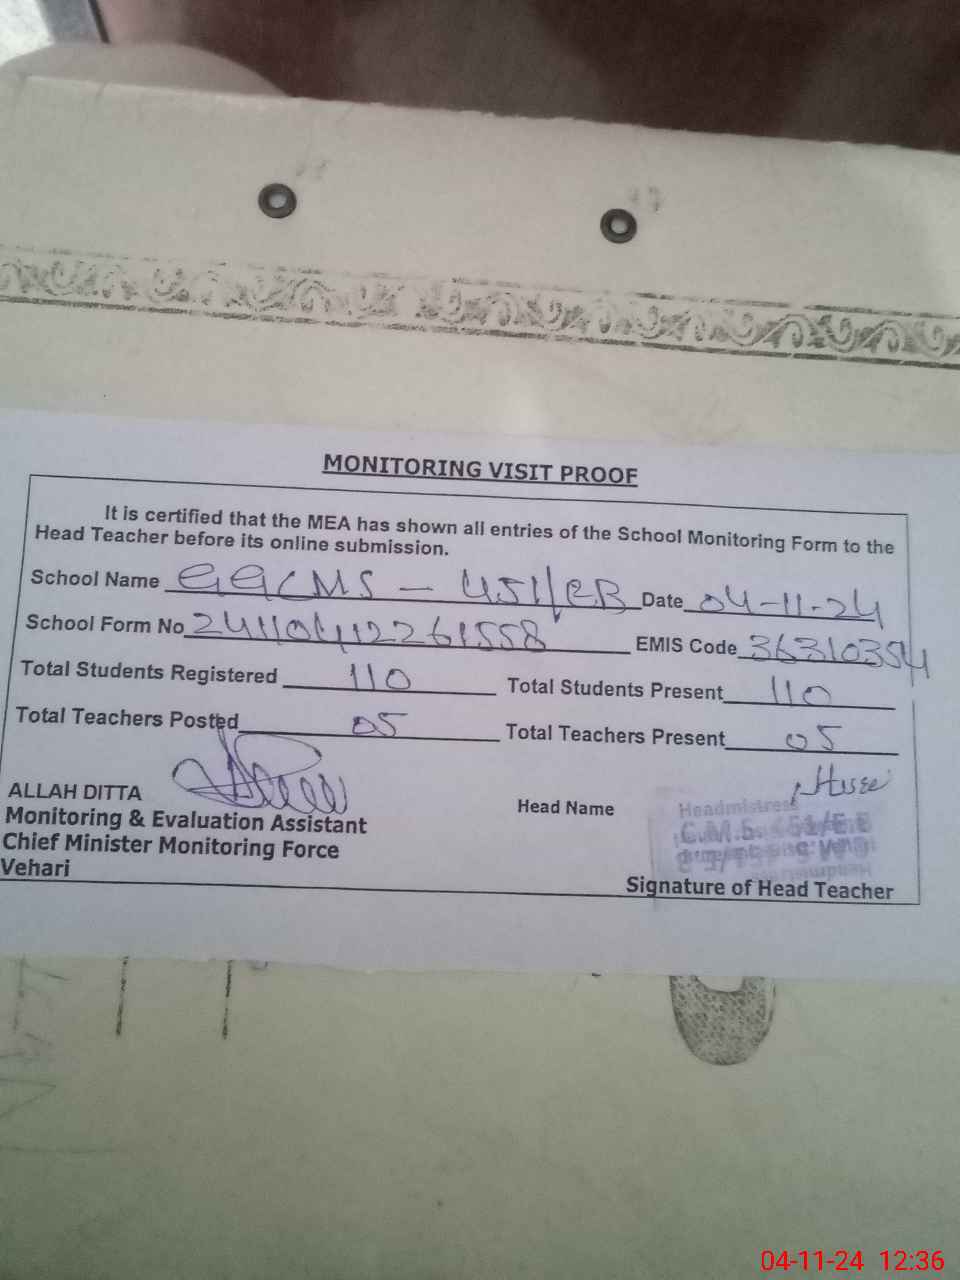 MONITORING VISIT PROOF
It is certified that the MEA has shown all entries of the School Monitoring Form to the
Head Teacher before its online submission.
School Name GGCMS - 451/EB Date 04-11-24
School Form No 241104122261558 EMIS Code 36310354
Total Students Registered 110 Total Students Present 110
Total Teachers Posted 05 Total Teachers Present 05
ALLAH DITTA Head Name Headmistress
Monitoring & Evaluation Assistant
Chief Minister Monitoring Force
Vehari
Signature of Head Teacher
04-11-24 12:36